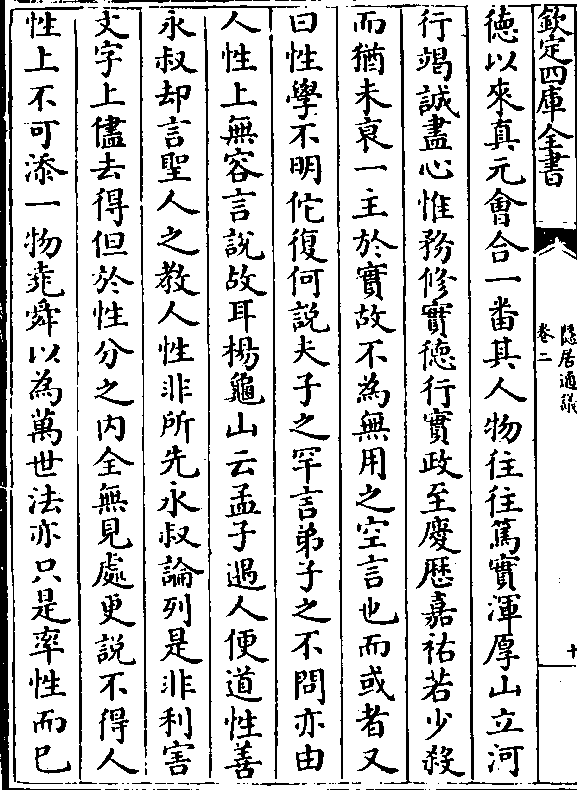 欽定四庫全書
隱居通議
卷二
十
徳以來真元㑹合一畨其人物往往篤實渾厚山立河
行竭誠盡心惟務修實徳行實政至慶歴嘉祐若少殺
而猶未衰一主於實故不為無用之空言也而或者又
曰性學不明佗復何說夫子之罕言弟子之不問亦由
人性上無容言說故耳楊龜山云孟子遇人便道性善
永叔却言聖人之教人性非所先永叔論列是非利害
文字上儘去得但於性分之内全無見處更說不得人
性上不可添一物堯舜以為萬世法亦只是率性而已